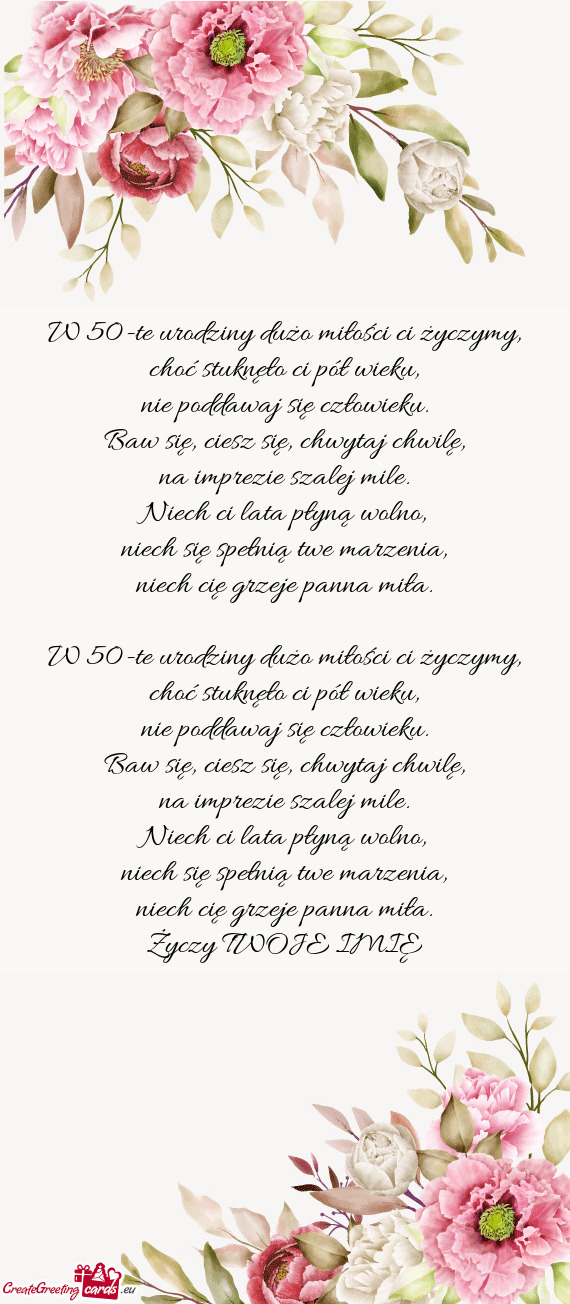 W 50-te urodziny dużo miłości ci życzymy,
choć stuknęło ci pół wieku,
nie poddawaj się człowieku.
Baw się, ciesz się, chwytaj chwilę,
na imprezie szalej mile.
Niech ci lata płyną wolno,
niech się spełnią twe marzenia,
niech cię grzeje panna miła.
W 50-te urodziny dużo miłości ci życzymy,
choć stuknęło ci pół wieku,
nie poddawaj się człowieku.
Baw się, ciesz się, chwytaj chwilę,
na imprezie szalej mile.
Niech ci lata płyną wolno,
niech się spełnią twe marzenia,
niech cię grzeje panna miła.
Życzy TWOJE IMIĘ
CreateGreeting cards .eu